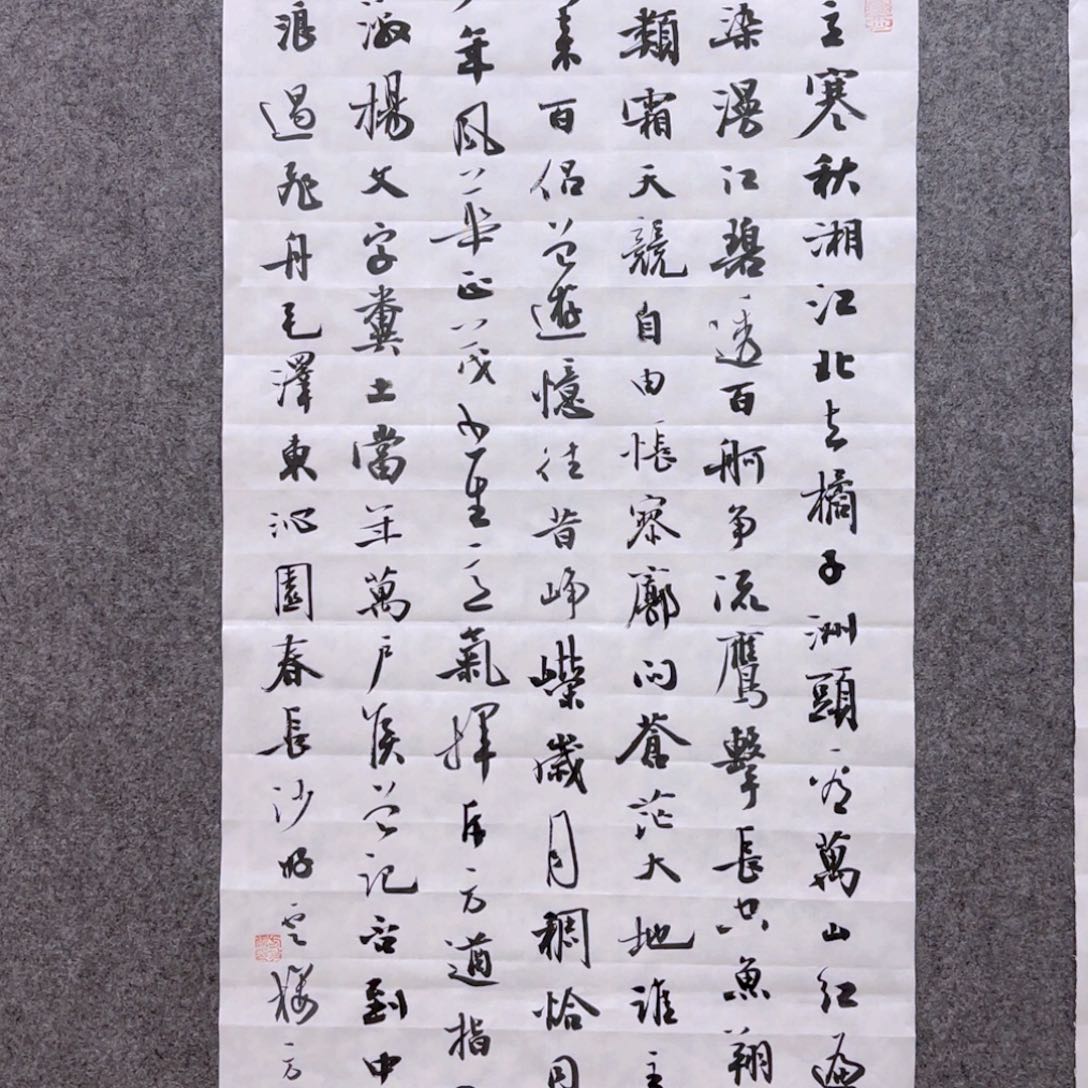 立寒秋湘江北去橘子洲頭看萬山紅遍
染漫江碧透百舸争流鷹擊長空魚翔
類霜天競自由悵寥廓問蒼茫大地誰主
来百侶曾遊憶往昔崢嶸歲月稠恰同
年風華正茂書生意氣揮斥方遒指
激揚文字糞土當年萬戶侯曾記否到中
浪遏飛舟毛澤東沁園春長沙雲樓方